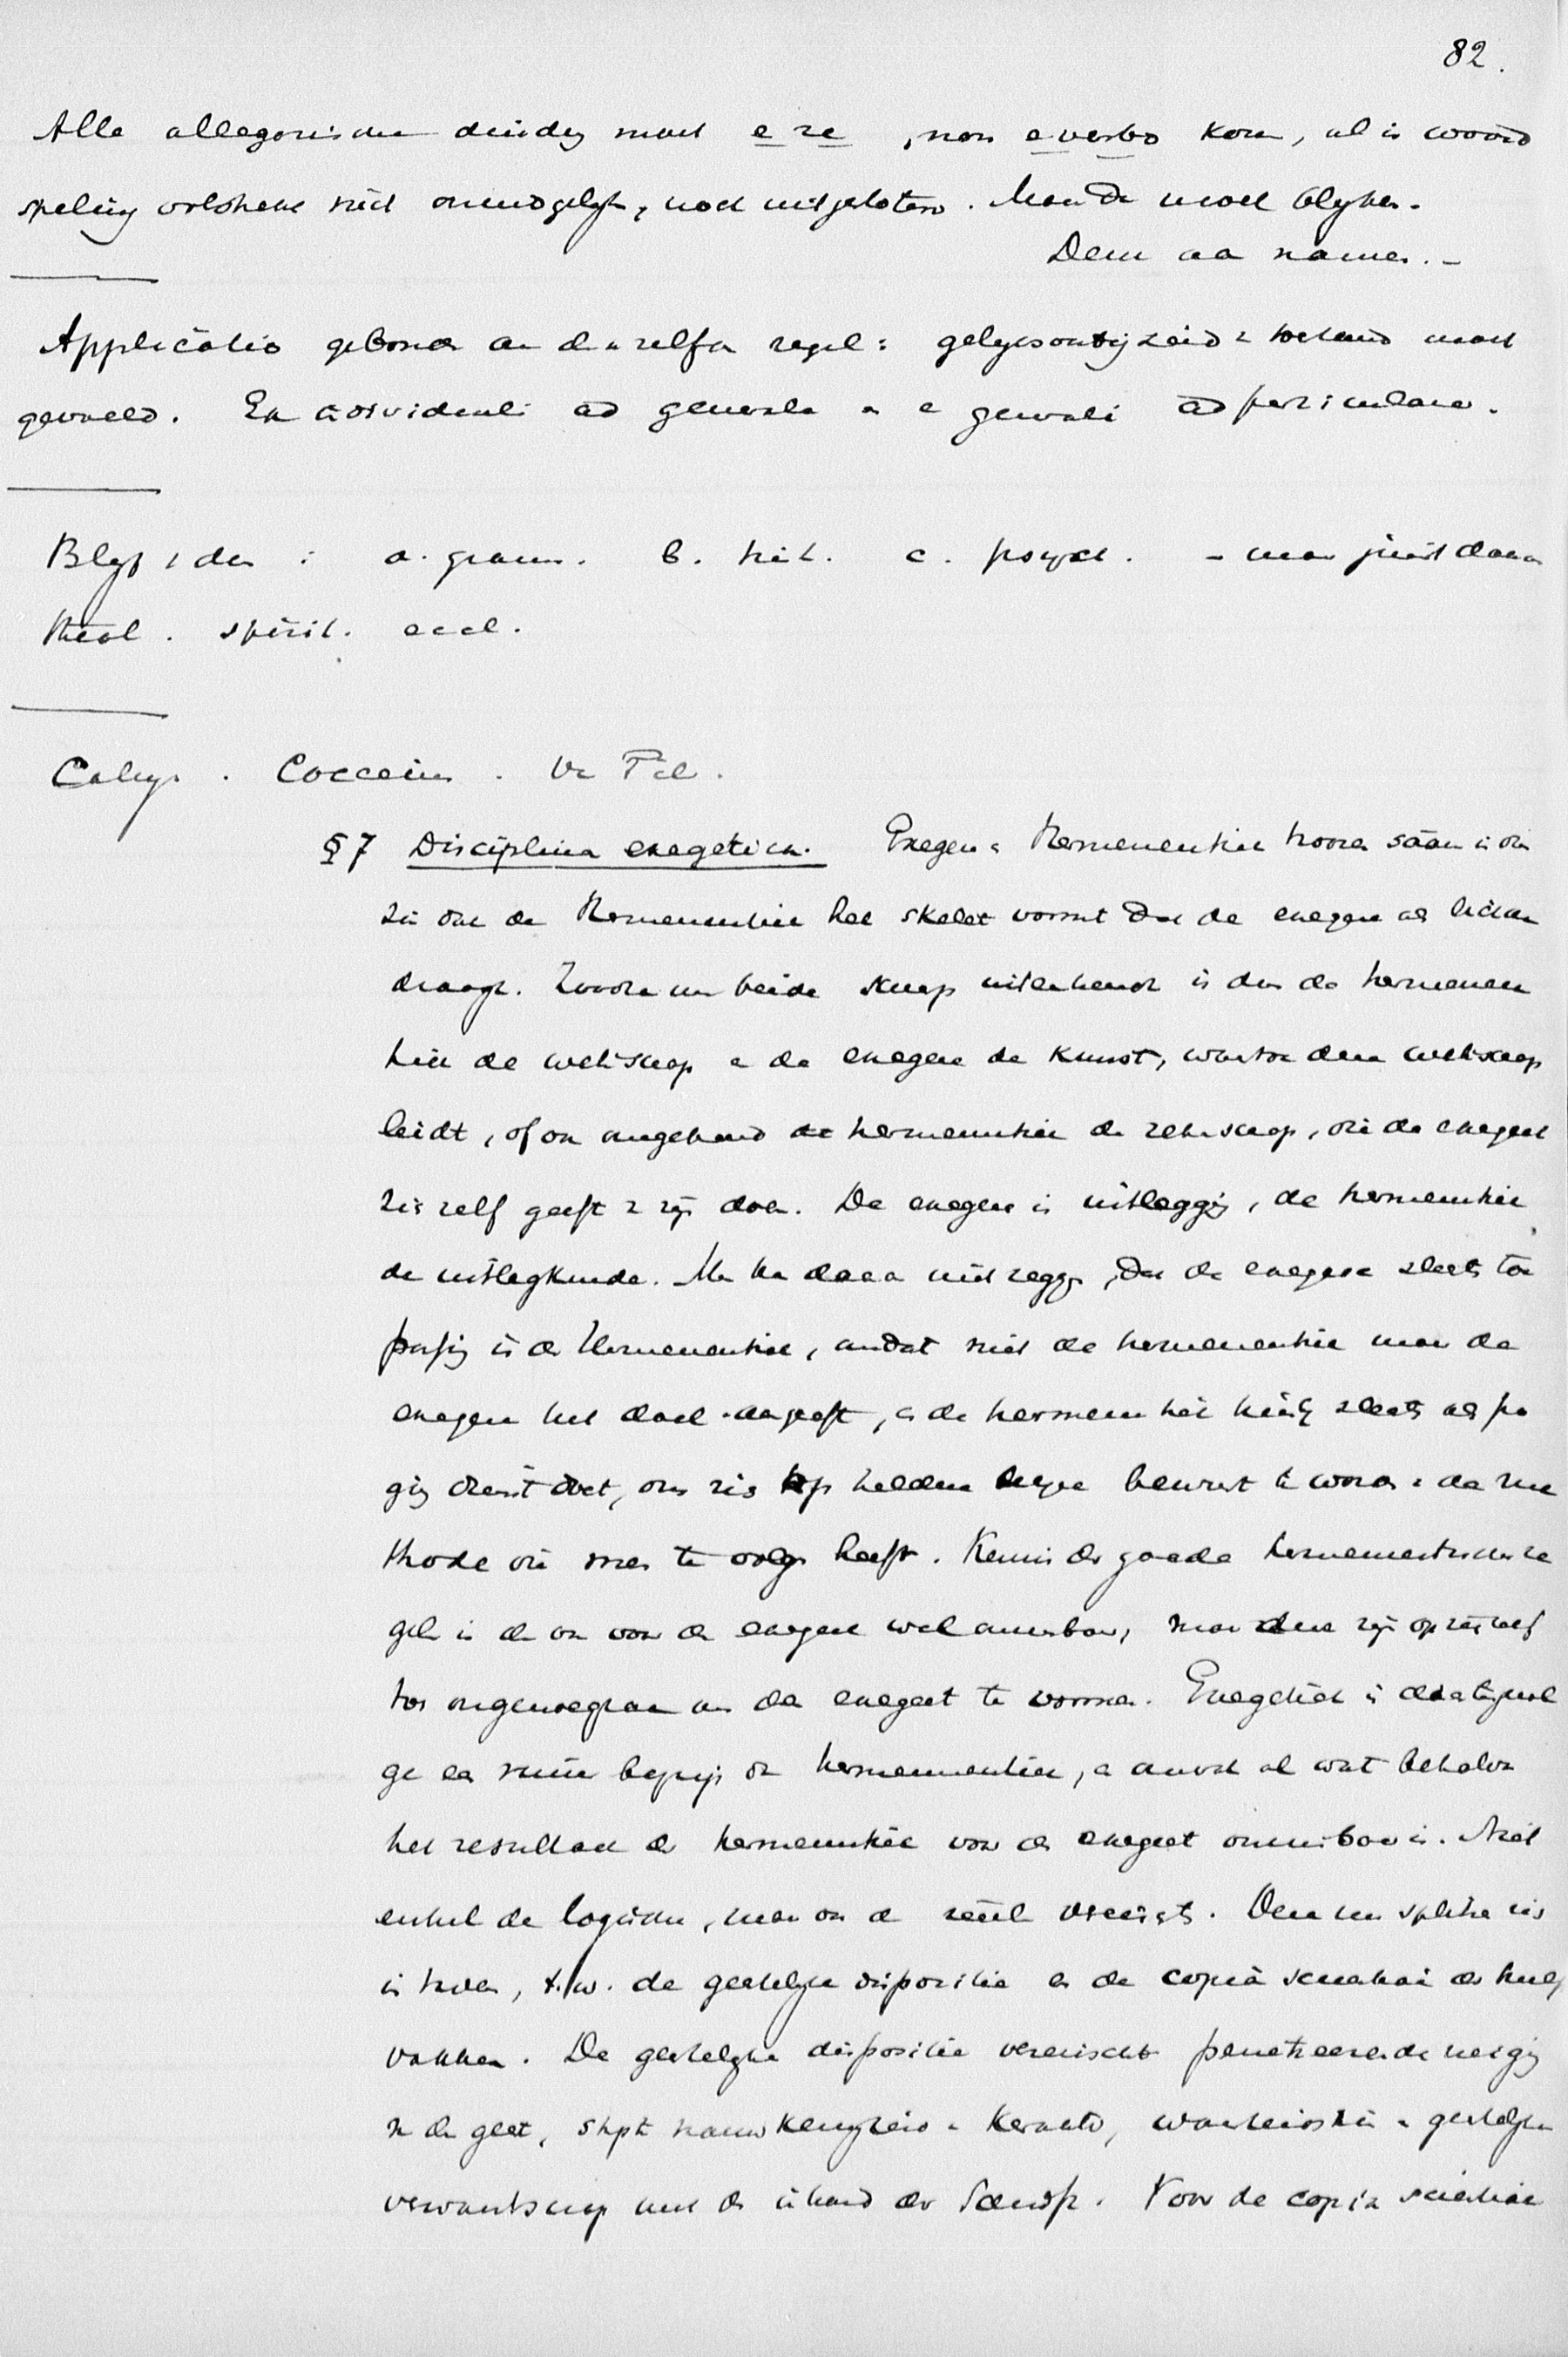 82.
Alle allegorische duiding moet e re, non e verbo komen, al is woord
speling volstrekt niet onmogelijk, noch uitgesloten. Maar die moet blyken.
Dem aa namen. –
Applicatio gebonden aan denzelfden regel: gelijksoortigheid toestand moet
gevoeld. Ex individuali ad generale en e generali ad particulare.
Blyft dus: a. gramm. b. hist. c. psych. – maar juist daarom
theol. spirit. eccl.
Calvyn. Cocceius. Vr
§ 7 Disciplina exegetica. Exegese en Hermeneutiek hooren saam in dien
zin dat de Hermeneutiek het skelet vormt dat de exegese als lichaam
draagt. Zoodra men beide scherp uiteenhoudt is dus de hermeneu
tiek de wetenschap en de exegese de kunst, waartoe deze wetenschap
leidt, of ook omgekeerd de hermeneutiek de rekenschap, die de exegeet
zich zelf geeft van zijn doen. De exegese is uitlegging, de hermeneutiek
de uitlegkunde. Men kan daarom niet zeggen, dat de exegese slechts toe
passing is der Hermeneutiek, omdat niet de hermeneutiek maar de
exegese het doel aangeeft, en de hermeneutiek slechts als po
ging dienst doet, om zich op heldere wijze bewust te worden van de me
thode die men te volgen heeft. Kennis der goede hermeneutische re
gels is dan ook voor de exegeet wel onmisbaar, maar deze zijn op zich zelf
toch ongenoegzaam om den exegeet te vormen. Exegetiek is dientengevol
ge een ruimer begrip dan hermeneutiek, en omvat al wat behalve
het resultaat der hermeneutiek voor den exegeet onmisbaar is. Niet
enkel de logische, maar ook de reëele vereischten. Deze nu splitsen zich
in tweeën, t.w. de geestelijke dispositie en de copia scientiae der hulp
vakken. De geestelijke dispositie vereischt penetreerende neiging
van den geest, stipte nauwkeurigheid en, waarheidszin en geestelijke
verwantschap met den inhoud der Schrift. Voor de copia scientiae